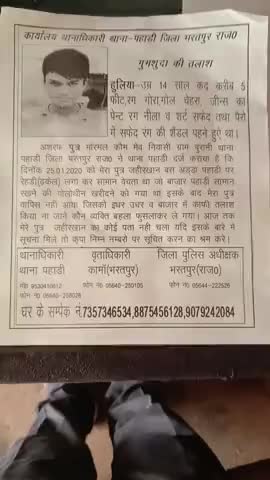 कार्यालय थानाधिकारी थाना-पहाडी जिला भरतपुर राज0
गुमशुदा की तलाश
हुलिया-उम्र 14 साल कद करीब 5
फीट,रंग गोरा,गोल चेहरा, जीन्स का
पेन्ट रंग नीला व शर्ट सफेद तथा पैरो
में सफेद रंग की शैंडल पहने हुए था।
अशरफ पुत्र मोरमल कौम मेव निवासी ग्राम पुरानी थाना
पहाडी जिला भरतपुर राज0 ने थाना पहाडी दर्ज कराया है कि
दिनॉक 25.01.2020 को मेरा पुत्र जहीरखान बस अड्डा पहाडी पर
रेहडी(ढकेल) लगा कर सामान बेचता था जो बाजार पहाडी सामान
रखने की खरीदने को गया था इसके बाद मेरा पुत्र
वापिस नही आया जिसको इधर उधर व बाजार में काफी तलाश
किया ना जाने कौन व्यक्ति बहला फुसलाकर ले गया। आज तक
मेरे पुत्र जहीरखान का कोई पता नही चला यदि इसके बारे में
सूचना मिले तो कृपा निम्न नम्बरो पर सूचित करने का श्रम करे।
थानाधिकारी वृताधिकारी जिला पुलिस अधीक्षक
थाना पहाडी कामाँ(भरतपुर) भरतपुर(राज0)
फोन नं0 05640- फोन नं0 05644-222526
फोन नं0 05640-
घर के सम्पर्क नं.7357346534,8875456128,9079242084